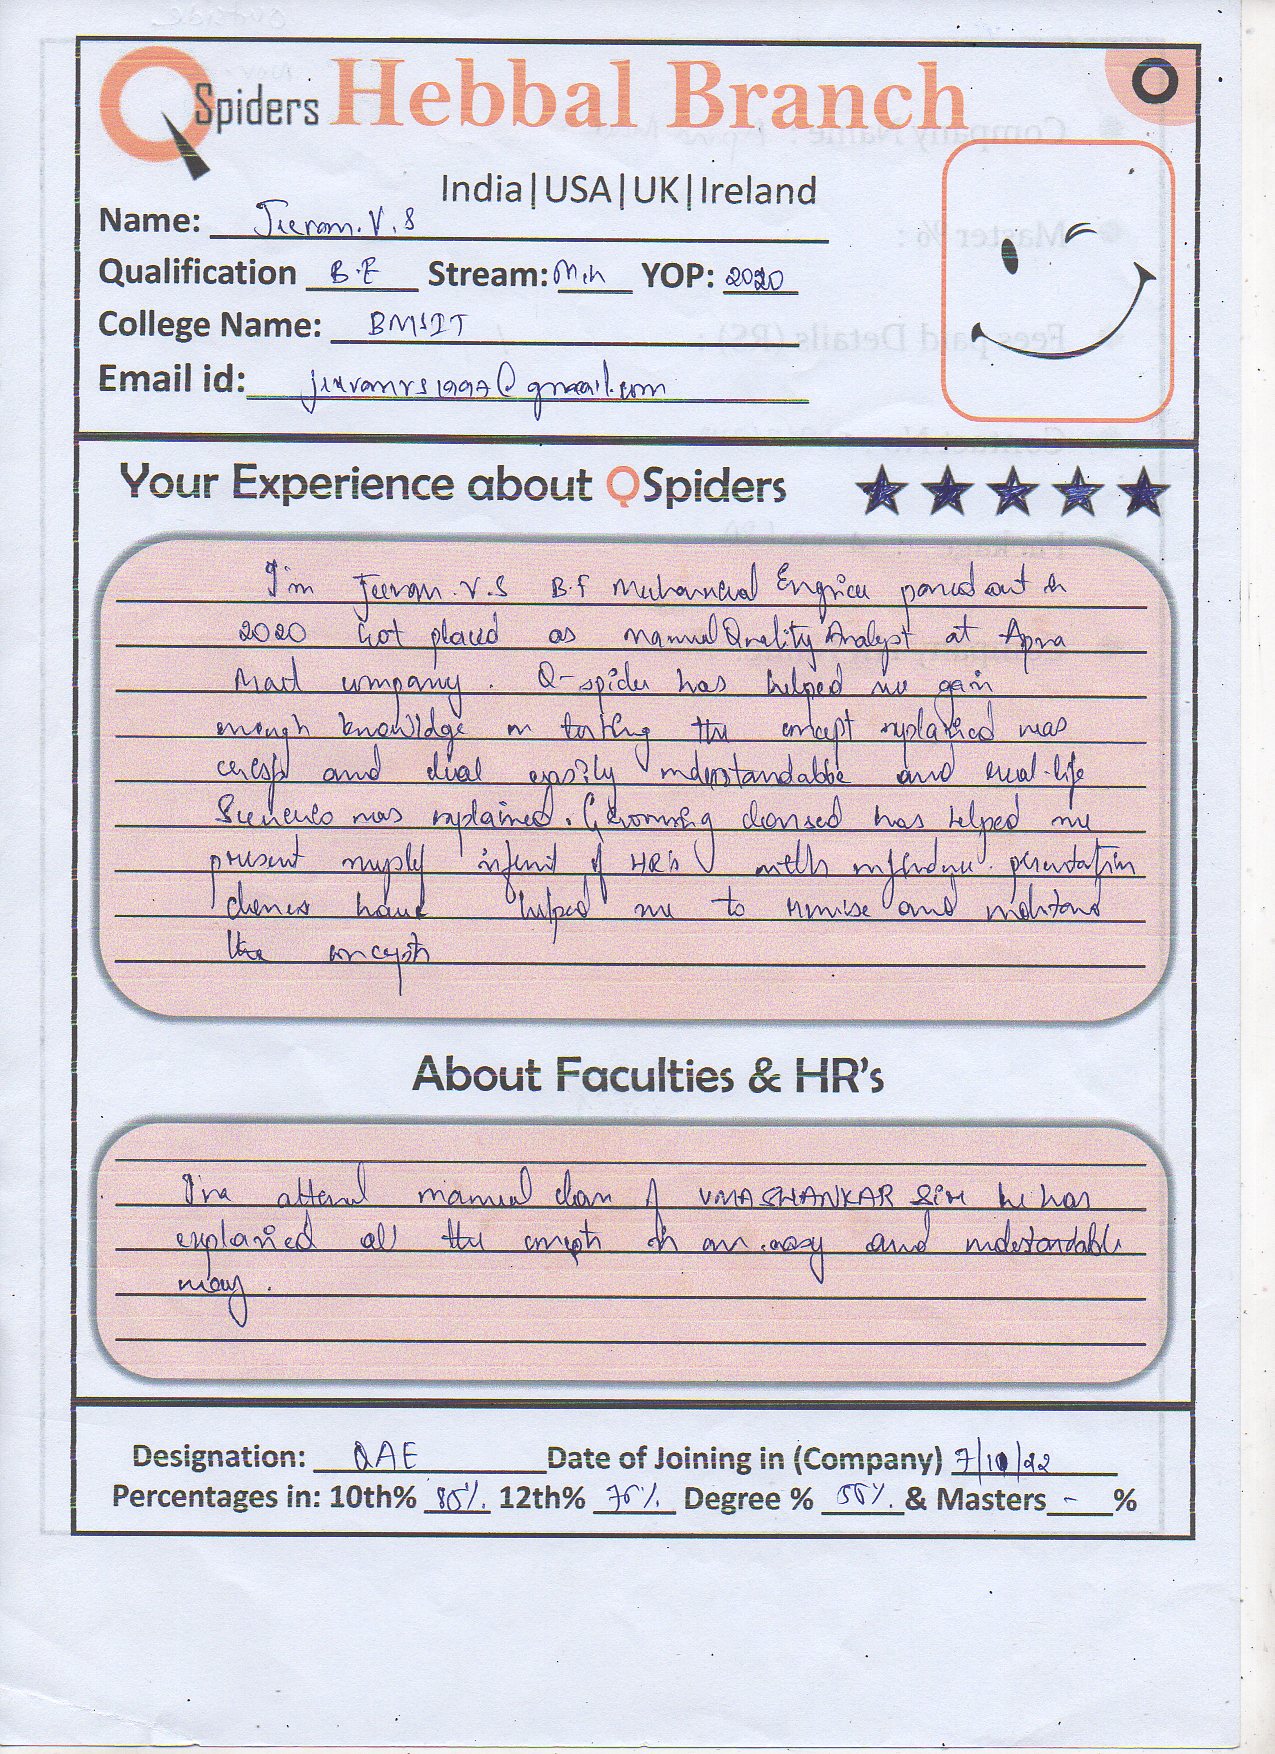 QSpiders Hebbal Branch
India|USA|UK|Ireland
Name: Jeevan.V.S
Qualification B.E Stream: Mech YOP: 2020
College Name: BMSIT
Email id: @gmail.com
Your Experience about QSpiders
I'm Jeevan.V.S B.E Mechanical Engineer passed out in
2020 Got placed as Manual Quality Analyst at Apna
Mart company. Q-spider has helped me gain
enough knowledge on testing the concept explained was
crisp and clear easily understandable and real-life
was explained. Grooming has helped me
present myself infront of HR's with
have helped me to revise and
the concepts
About Faculties & HR's
I've attend manual class of UMASHANKAR SIR he has
explained all the concepts in an easy and understandable
way.
Designation: QAE Date of Joining in (Company) 7/10/22
Percentages in: 10th% 85%. 12th% 75%. Degree % 55%. & Masters - %